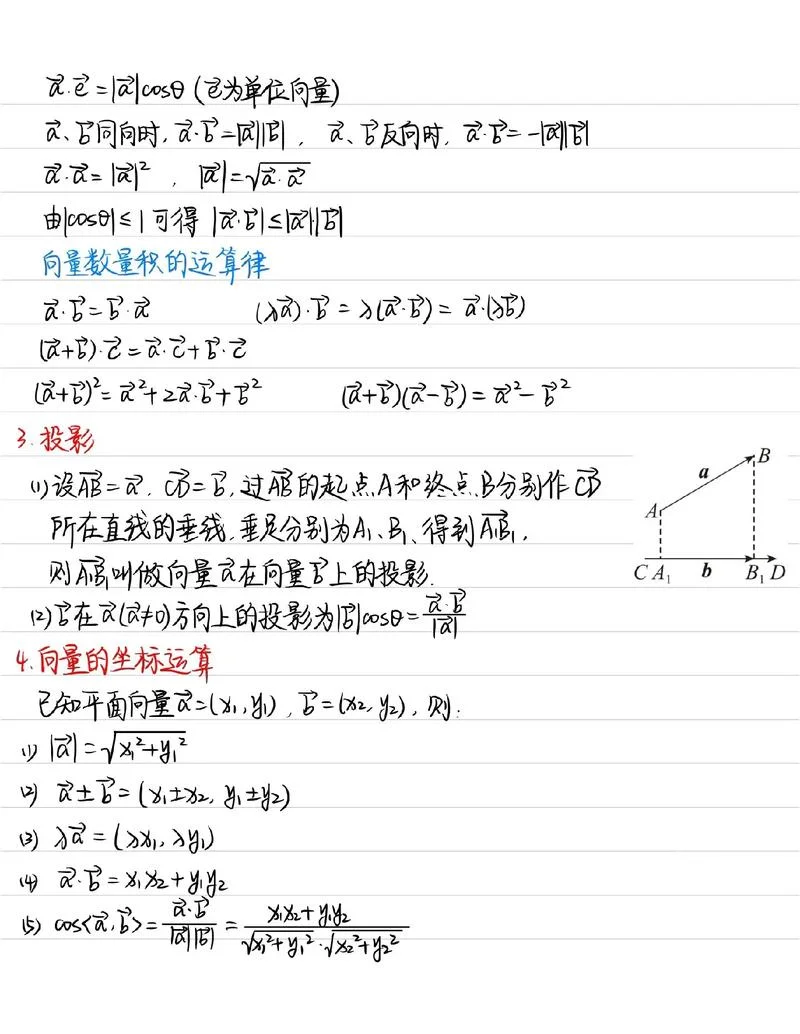 a⃗·e⃗=|a⃗|cosθ (e⃗为单位向量)
a⃗、b⃗同向时, a⃗·b⃗=|a⃗||b⃗| , a⃗、b⃗反向时, a⃗·b⃗=-|a⃗||b⃗|
a⃗·a⃗=|a⃗|² , |a⃗|=√(a⃗·a⃗)
由|cosθ|≤1可得 |a⃗·b⃗|≤|a⃗||b⃗|
向量数量积的运算律
a⃗·b⃗=b⃗·a⃗ (λa⃗)·b⃗=λ(a⃗·b⃗)=a⃗·(λb⃗)
(a⃗+b⃗)·c⃗=a⃗·c⃗+b⃗·c⃗
(a⃗+b⃗)²=a⃗²+2a⃗·b⃗+b⃗² (a⃗+b⃗)(a⃗-b⃗)=a⃗²-b⃗²
3.投影
(1)设AB⃗=a⃗, CD⃗=b⃗, 过AB⃗的起点A和终点B分别作CD⃗
所在直线的垂线,垂足分别为A₁、B₁、得到A₁B₁⃗,
则A₁B₁⃗叫做向量a⃗在向量b⃗上的投影.
B
a
A
C A₁ b B₁ D
(2)b⃗在a⃗(a⃗≠0)方向上的投影为|b⃗|cosθ=a⃗·b⃗/|a⃗|
4.向量的坐标运算
已知平面向量a⃗=(x₁,y₁), b⃗=(x₂,y₂), 则:
(1) |a⃗|=√(x₁²+y₁²)
(2) a⃗±b⃗=(x₁±x₂, y₁±y₂)
(3) λa⃗=(λx₁,λy₁)
(4) a⃗·b⃗=x₁x₂+y₁y₂
(5) cos<a⃗,b⃗>=a⃗·b⃗/|a⃗||b⃗|=x₁x₂+y₁y₂/√(x₁²+y₁²)·√(x₂²+y₂²)